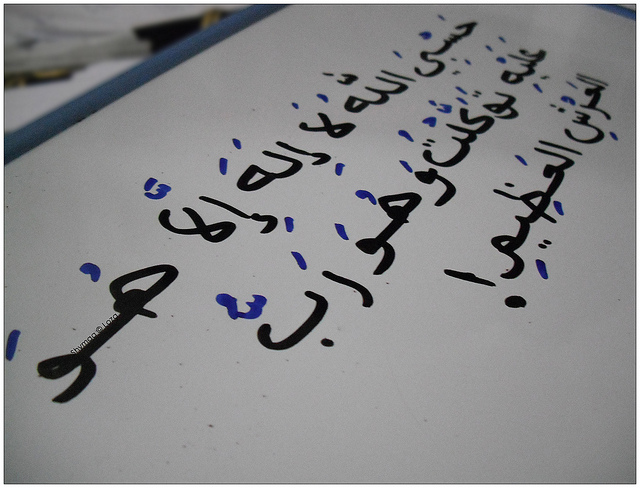 حَسْبِيَ اللهُ لَا إِلَهَ إِلَّا هُوَ
عَلَيْهِ تَوَكَّلْتُ وَهُوَ رَبُّ
العَرْشِ العَظِيمِ !